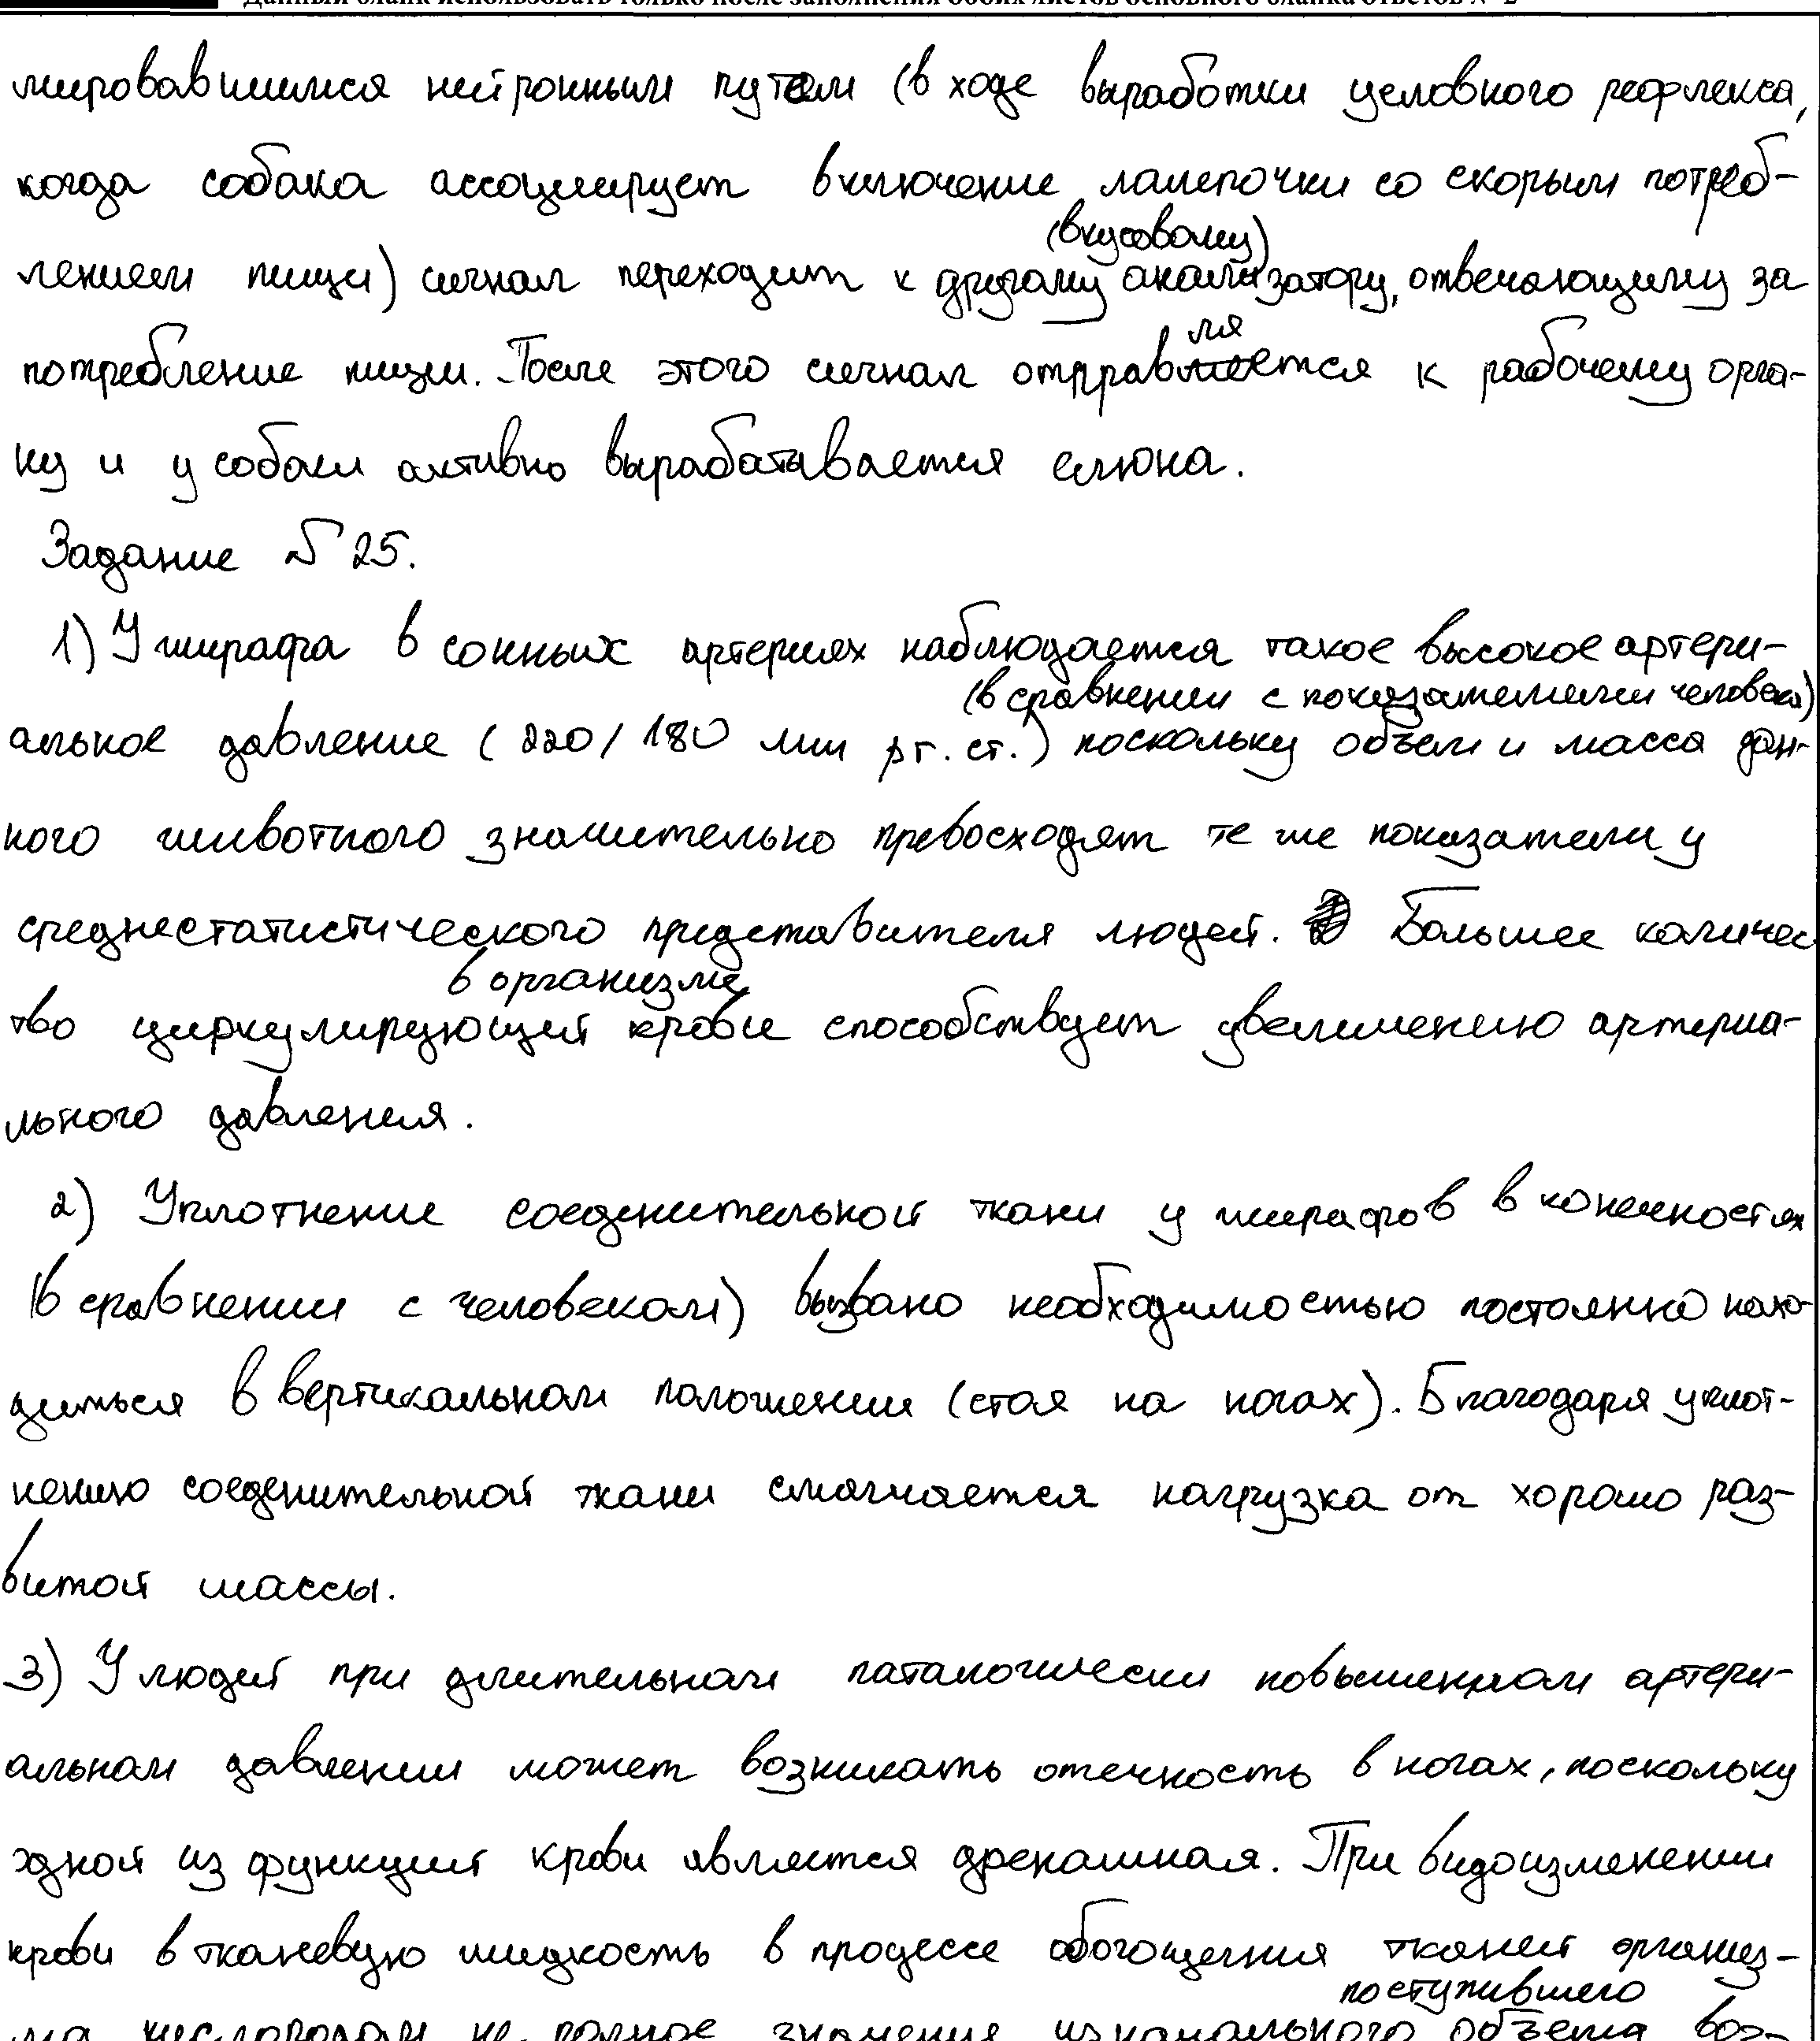 Данный бланк использовать только после заполнения обоих листов основного бланка ответов № 2
мировавшимся нейронным путем (в ходе выработки условного рефлекса,
когда собака ассоциирует включение лампочки со скорым потреб-
лением пищи) сигнал переходит к другому (вкусовому) анализатору, отвечающему за
потребление пищи. После этого сигнал отправляется к рабочему орга-
ну и у собаки активно вырабатывается слюна.
Задание №25.
1) У жирафа в сонных артериях наблюдается такое высокое артери-
альное давление (220/180 мм рт. ст.) (в сравнении с показателями человека) поскольку объем и масса дан-
ного животного значительно превосходят те же показатели у
среднестатистического представителя людей. Большее количес
тво циркулирующей в организме крови способствует увеличению артериа-
льного давления.
2) Уплотнение соеденительной ткани у жирафов в конечностях
(в сравнении с человеком) вызвано необходимостью постоянно нахо-
диться в вертикальном положении (стоя на ногах). Благодаря уплот-
нению соеденительной ткани смягчается нагрузка от хорошо раз-
витой массы.
3) У людей при длительном паталогически повышенном артери-
альном давлении может возникать отечность в ногах, поскольку
одной из функций крови является дренажная. При видоизменении
крови в тканевую жидкость в процессе обогощения тканей организ-
ма кислородом не полное значение изначального поступившего объема воз-